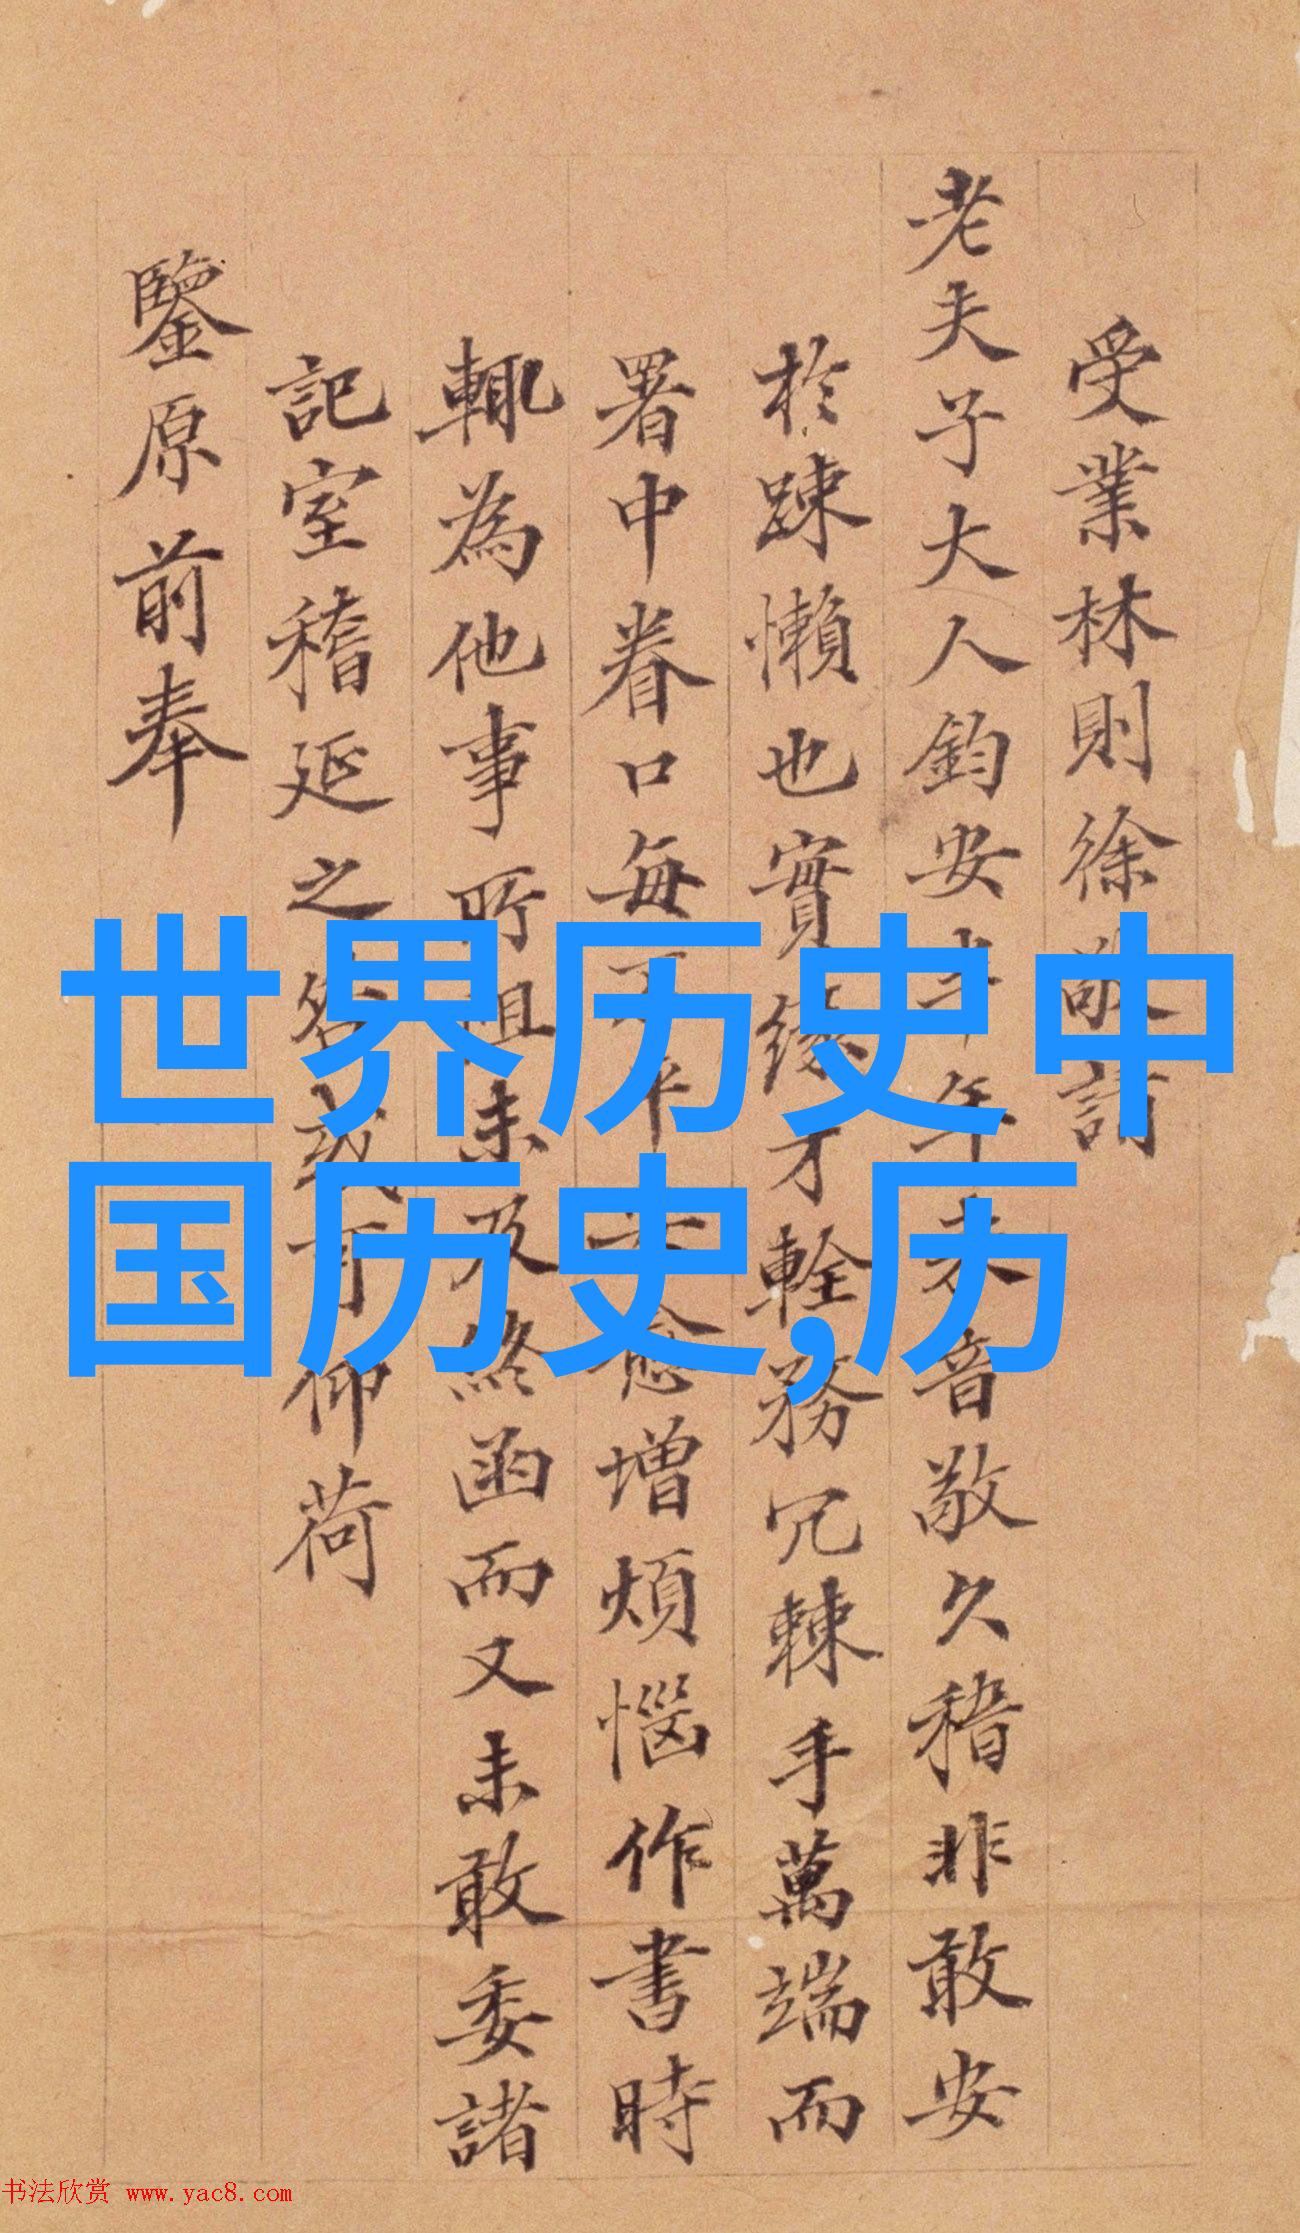 受業林則徐敬請
老夫子大人鈞安半年未音敬久稽非敢安
於踈懶也實緣才輇務冗棘手萬端而
署中眷口每
愈增煩惱作書時
輒為他事所阻未及終函而又未敢委諸
記室稽延之
仰荷
鑒原前奉
世界历史中
国历史,历
书法欣赏 www.yac8.com